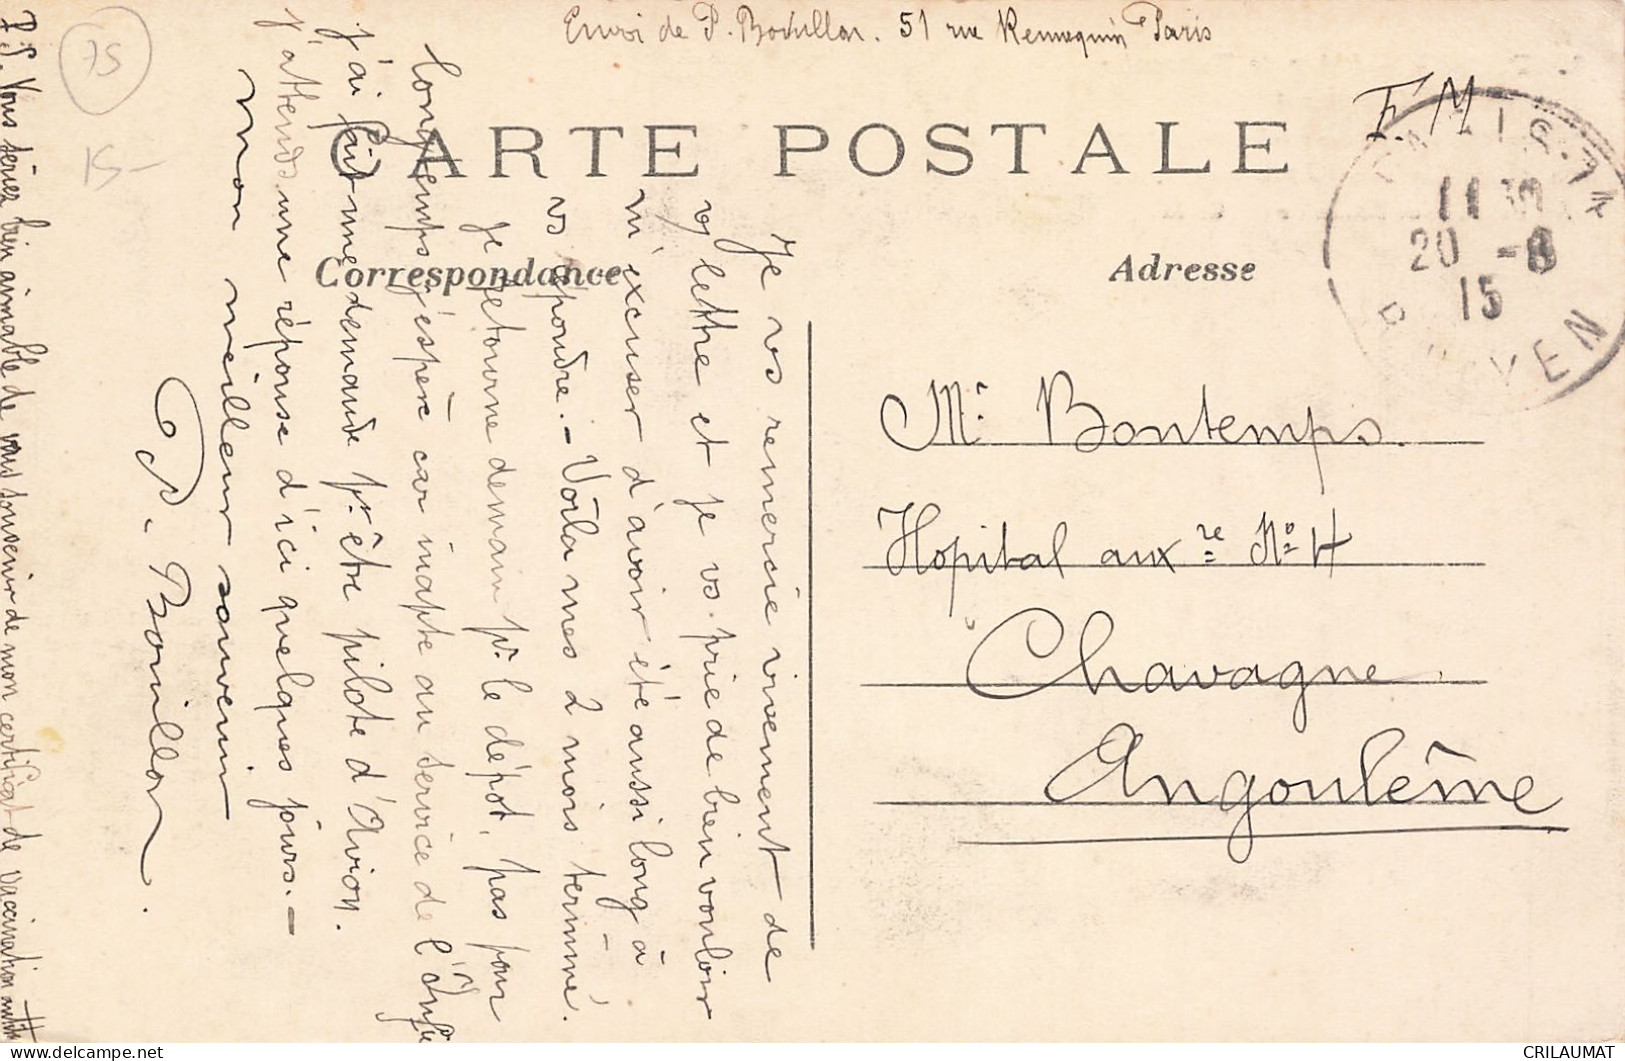 Envoi de P. Bouillon. 51 rue Rennequin Paris
F. M
CARTE POSTALE
Correspondance
Adresse
PARIS
11 30
20 - 8
15
75
15-
Mr. Bontemps.
Hopital auxre No H
Chavagne
Angoulême
Je vs remercie vivement de
lettre et je vs. prie de bien vouloir
m'excuser d'avoir été aussi long à
vs répondre. - Voila mes 2 mois terminé.
Je retourne demain pr. le dépot, pas pour
longtemps j'espère car inapte au service de l'Infie
j'ai fait une demande pr être pilote d'Avion.
j'attends une réponse d'ici quelques jours. -
mon meilleur souvenir
P. Bouillon.
P.S. Vous seriez bien aimable de vous souvenir de mon certificat de vaccination
CRILAUMAT